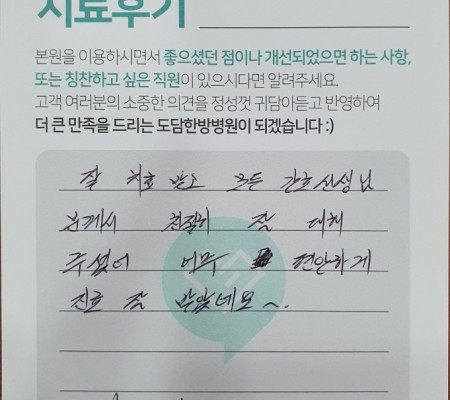 치료후기
본원을 이용하시면서 좋으셨던 점이나 개선되었으면 하는 사항,
또는 칭찬하고 싶은 직원이 있으시다면 알려주세요.
고객 여러분의 소중한 의견을 정성껏 귀담아듣고 반영하여
더 큰 만족을 드리는 도담한방병원이 되겠습니다 :)
잘 치료 받고 모든 간호선생님
분께서 친절히 잘 대해
주셨어 너무 편안하게
진료 잘 받았네요~.